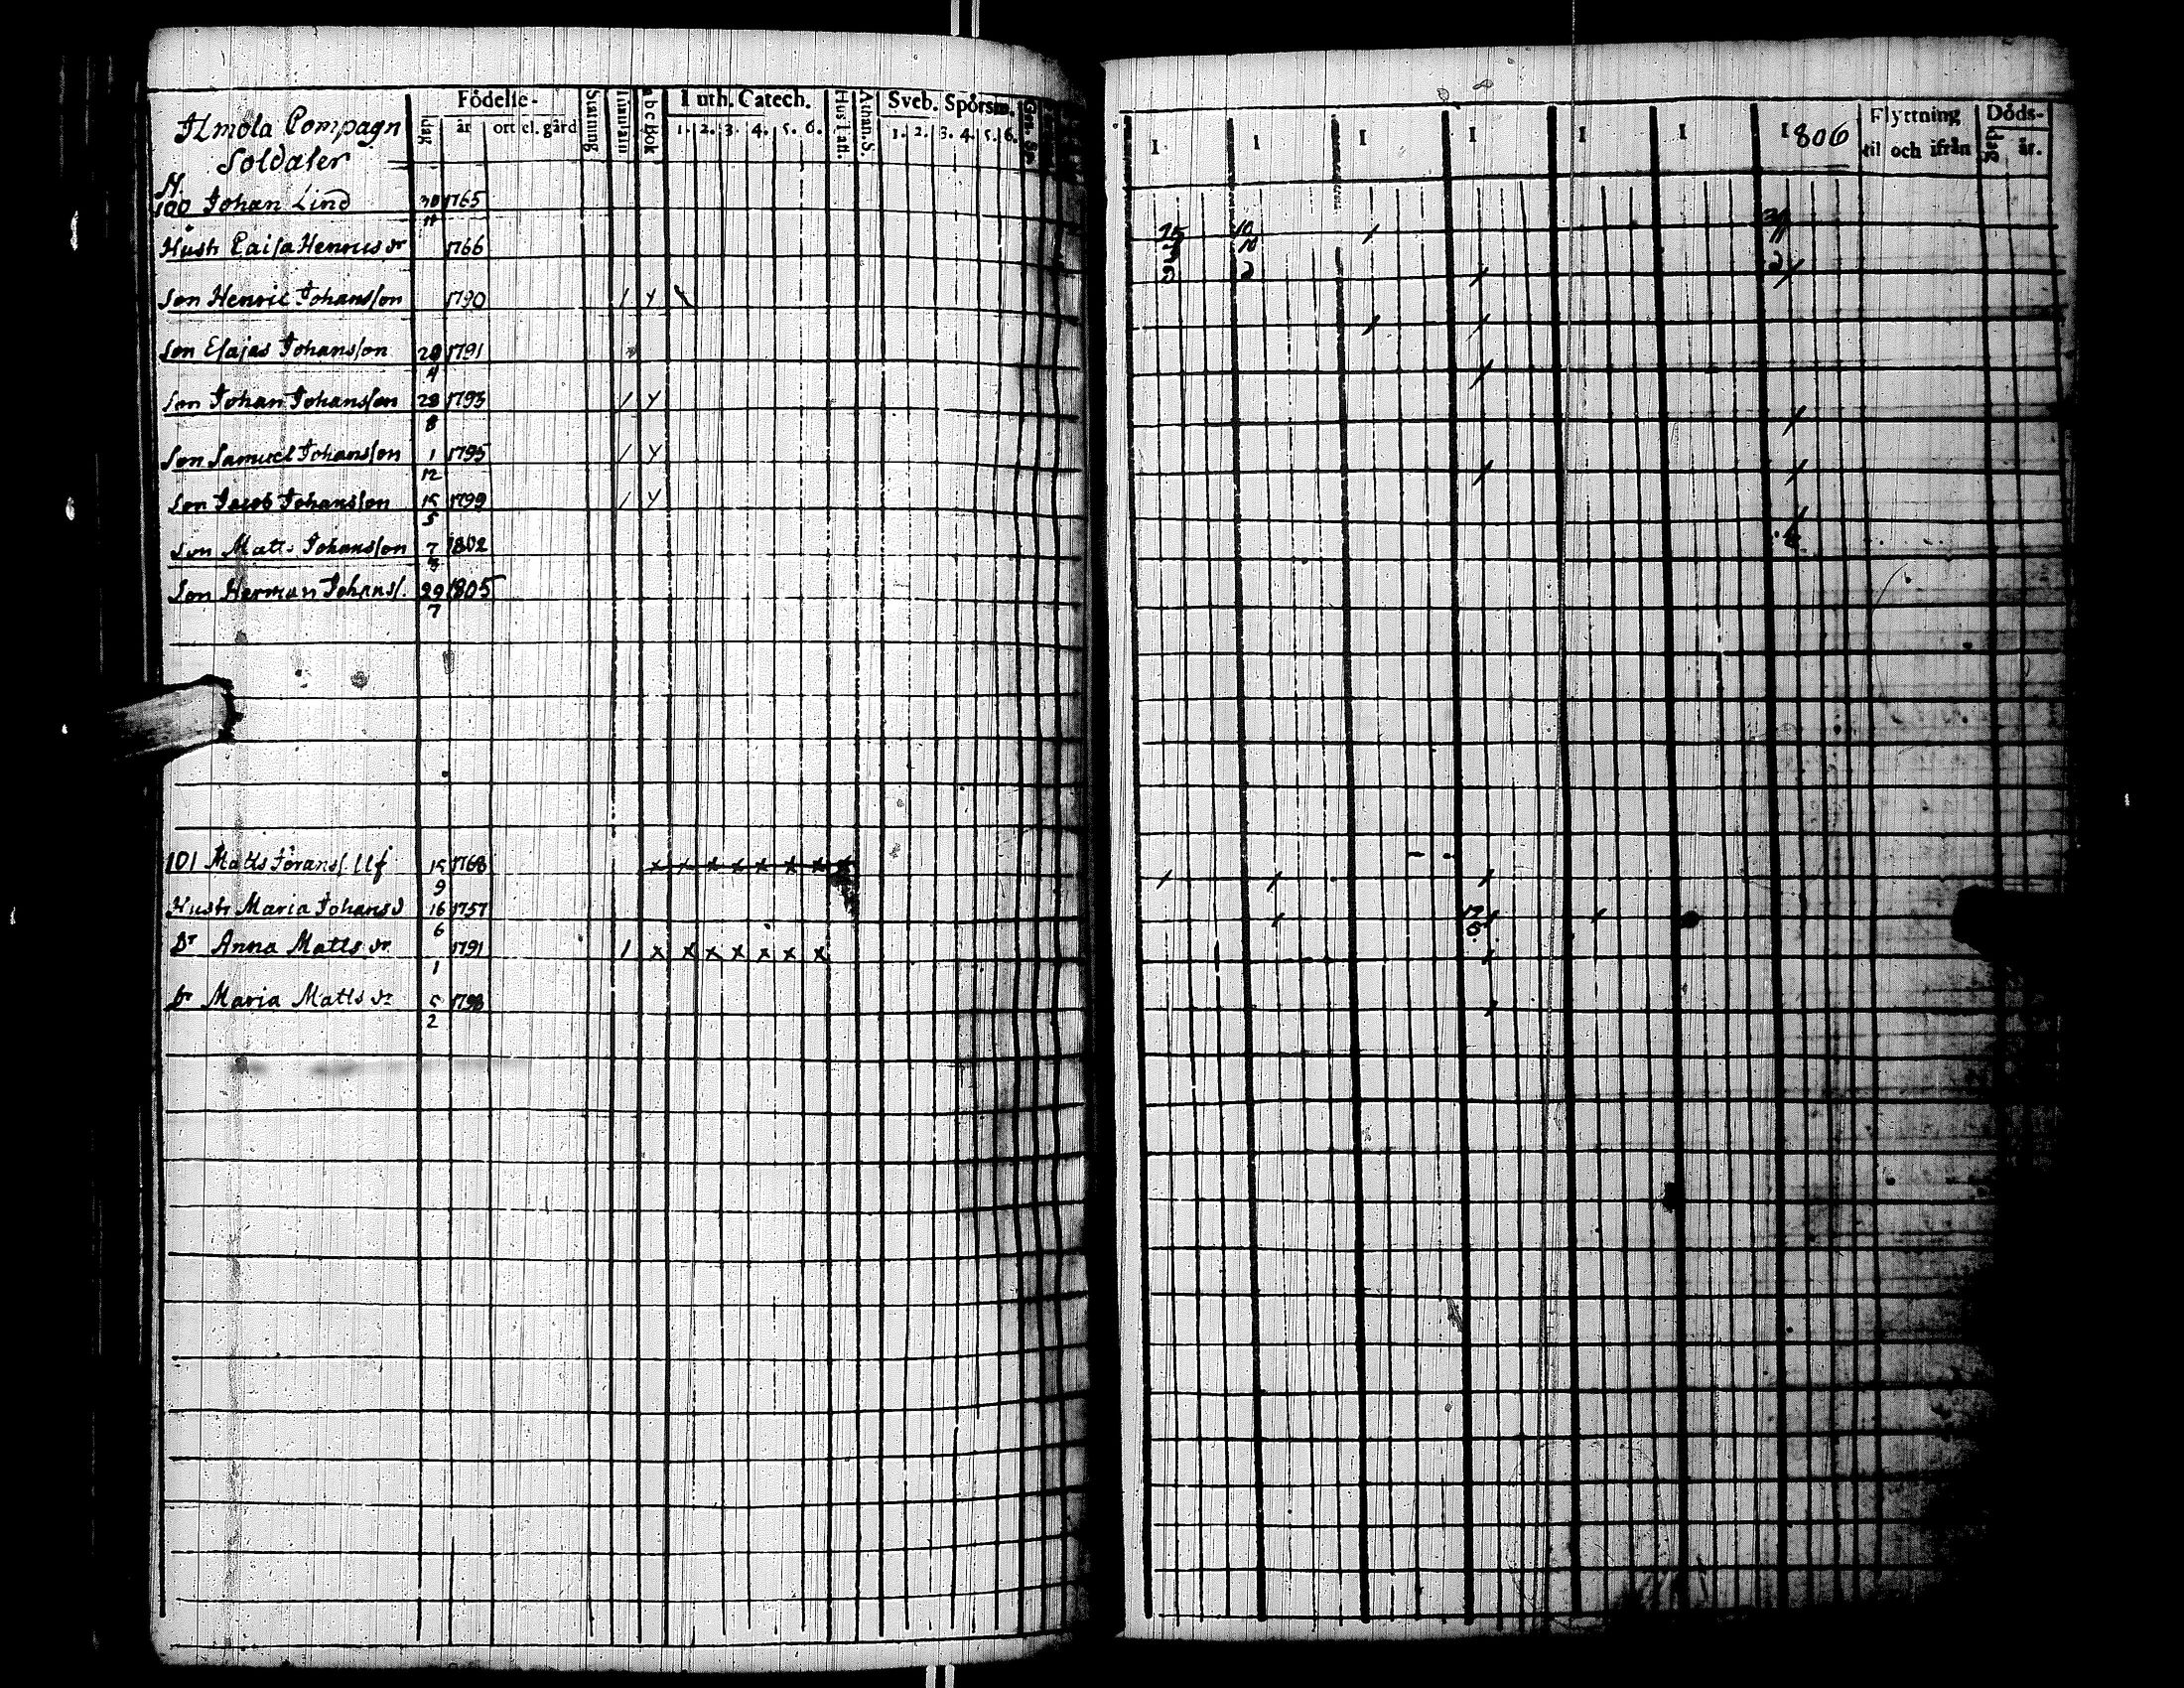 Ilmola Compagn
Soldater
Födelse-
dag år ort el. gård
Stafning
Innan
a b c Bok
Luth. Catech.
1. 2. 3. 4. 5. 6.
Hus Taff.
Athan. S.
Sveb. Spörsm.
1. 2. 3. 4. 5. 6.
1 1 1 1 1 1 1806
Flyttning
til och ifrån
Döds-
dag år.
N.
100 Johan Lind 30 1765
11
Hustr Caisa Henricsdr 1766
Son Henric Johansson 1790
Son Esajas Johansson 1791
4
Son Johan Johansson 28 1793
8
Son Samuel Johansson 1 1795
12
Son Jacob Johansson 15 1799
5
Son Matts Johansson 7 1802
Son Herman Johanss. 29 1805
7
101 Matts Joranss. 15 1768
9
Hustr Maria Johansd 16 1757
6
Dr Anna Matts dr 1791
1
Dr Maria Matts dr 5 1798
2